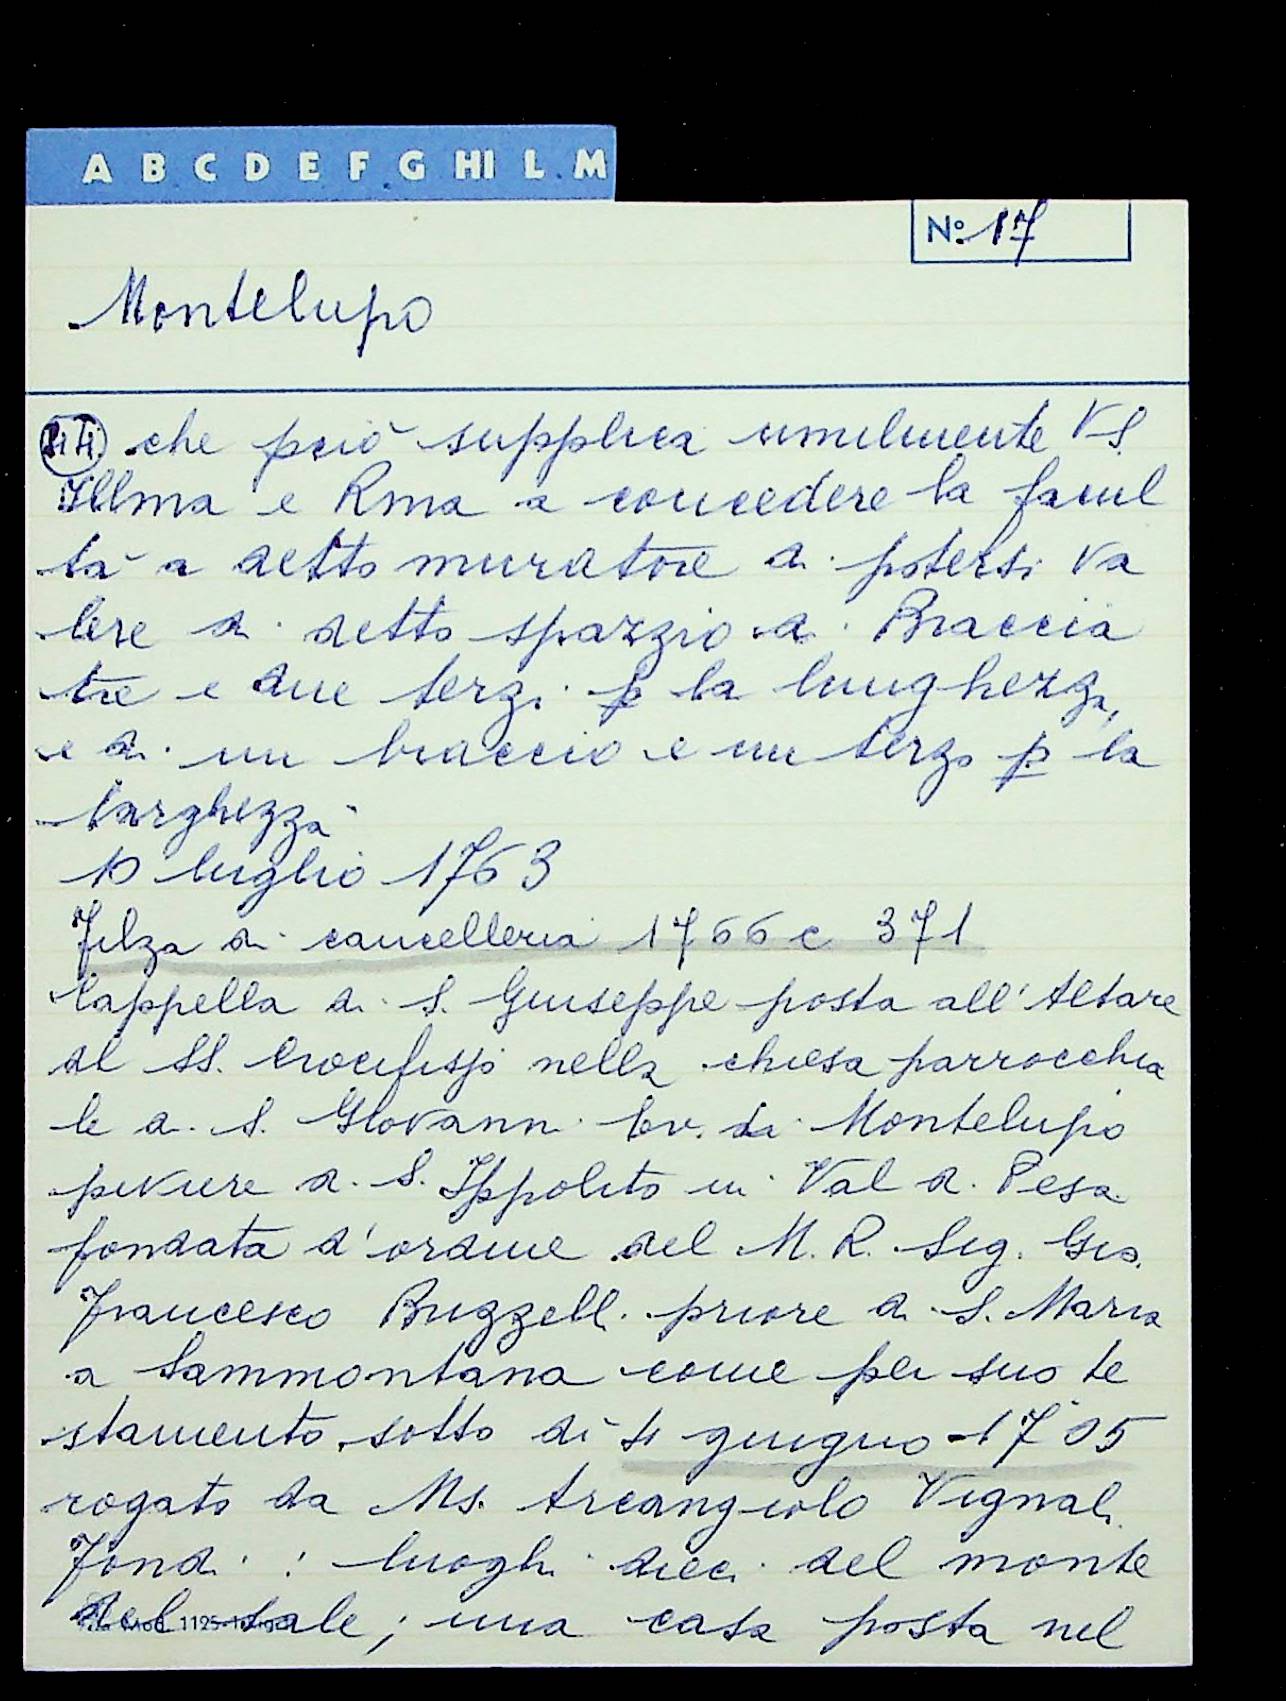 A B C D E F G HI L M
No. 17
Montelupo
che perciò supplica umilmente VS.
Illma e Rma a concedere la facul
tà a detto muratore di potersi va
lere di detto spazzio di Braccia
tre e due terzi p la lunghezza,
e di un braccio e un terzo p la
larghezza
10 luglio 1763
Filza di cancelleria 1766 c 371
Cappella di S. Giuseppe posta all'Altare
del SS. Crocifisso nella chiesa parrocchia
le di S. Giovanni Ev. di Montelupo
piviere di S. Ippolito in Val di Pesa
fondata d'ordine del M. R. Sig. Gio.
Francesco Buzzelli priore di S. Maria
a Sammontana come per suo te
stamento sotto dì giugno 1705
rogato da Ms. Arcangiolo Vignali
Fondi : luoghi dieci del monte
del sale ; una casa posta nel